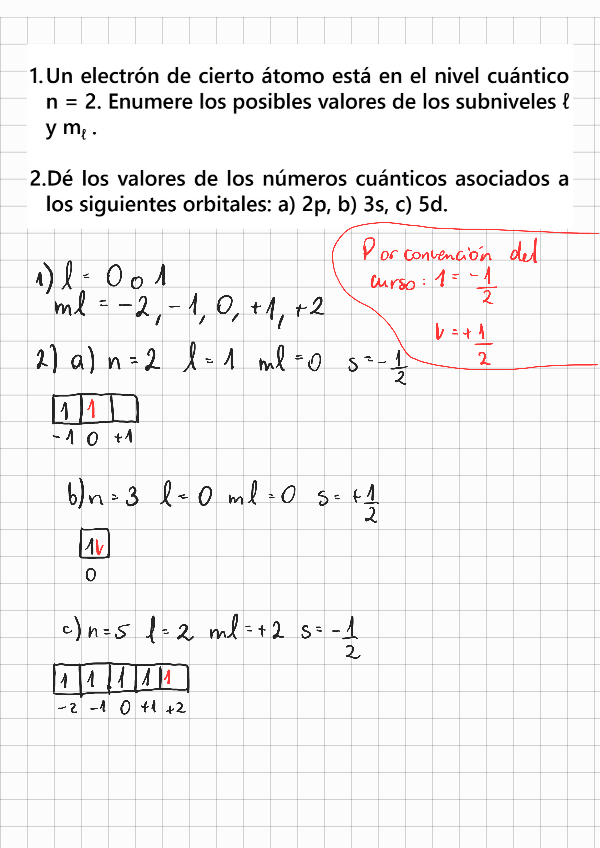 1.Un electrón de cierto átomo está en el nivel cuántico
n = 2. Enumere los posibles valores de los subniveles ℓ
y mℓ .
2.Dé los valores de los números cuánticos asociados a
los siguientes orbitales: a) 2p, b) 3s, c) 5d.
Por convención del
curso: 1 = -1/2
v = +1/2
1) l = 0 o 1
ml = -2, -1, 0, +1, +2
2) a) n = 2 l = 1 ml = 0 s = -1/2
1 1
-1 0 +1
b) n = 3 l = 0 ml = 0 s = +1/2
1v
0
c) n = 5 l = 2 ml = +2 s = -1/2
1 1 1 1 1
-2 -1 0 +1 +2